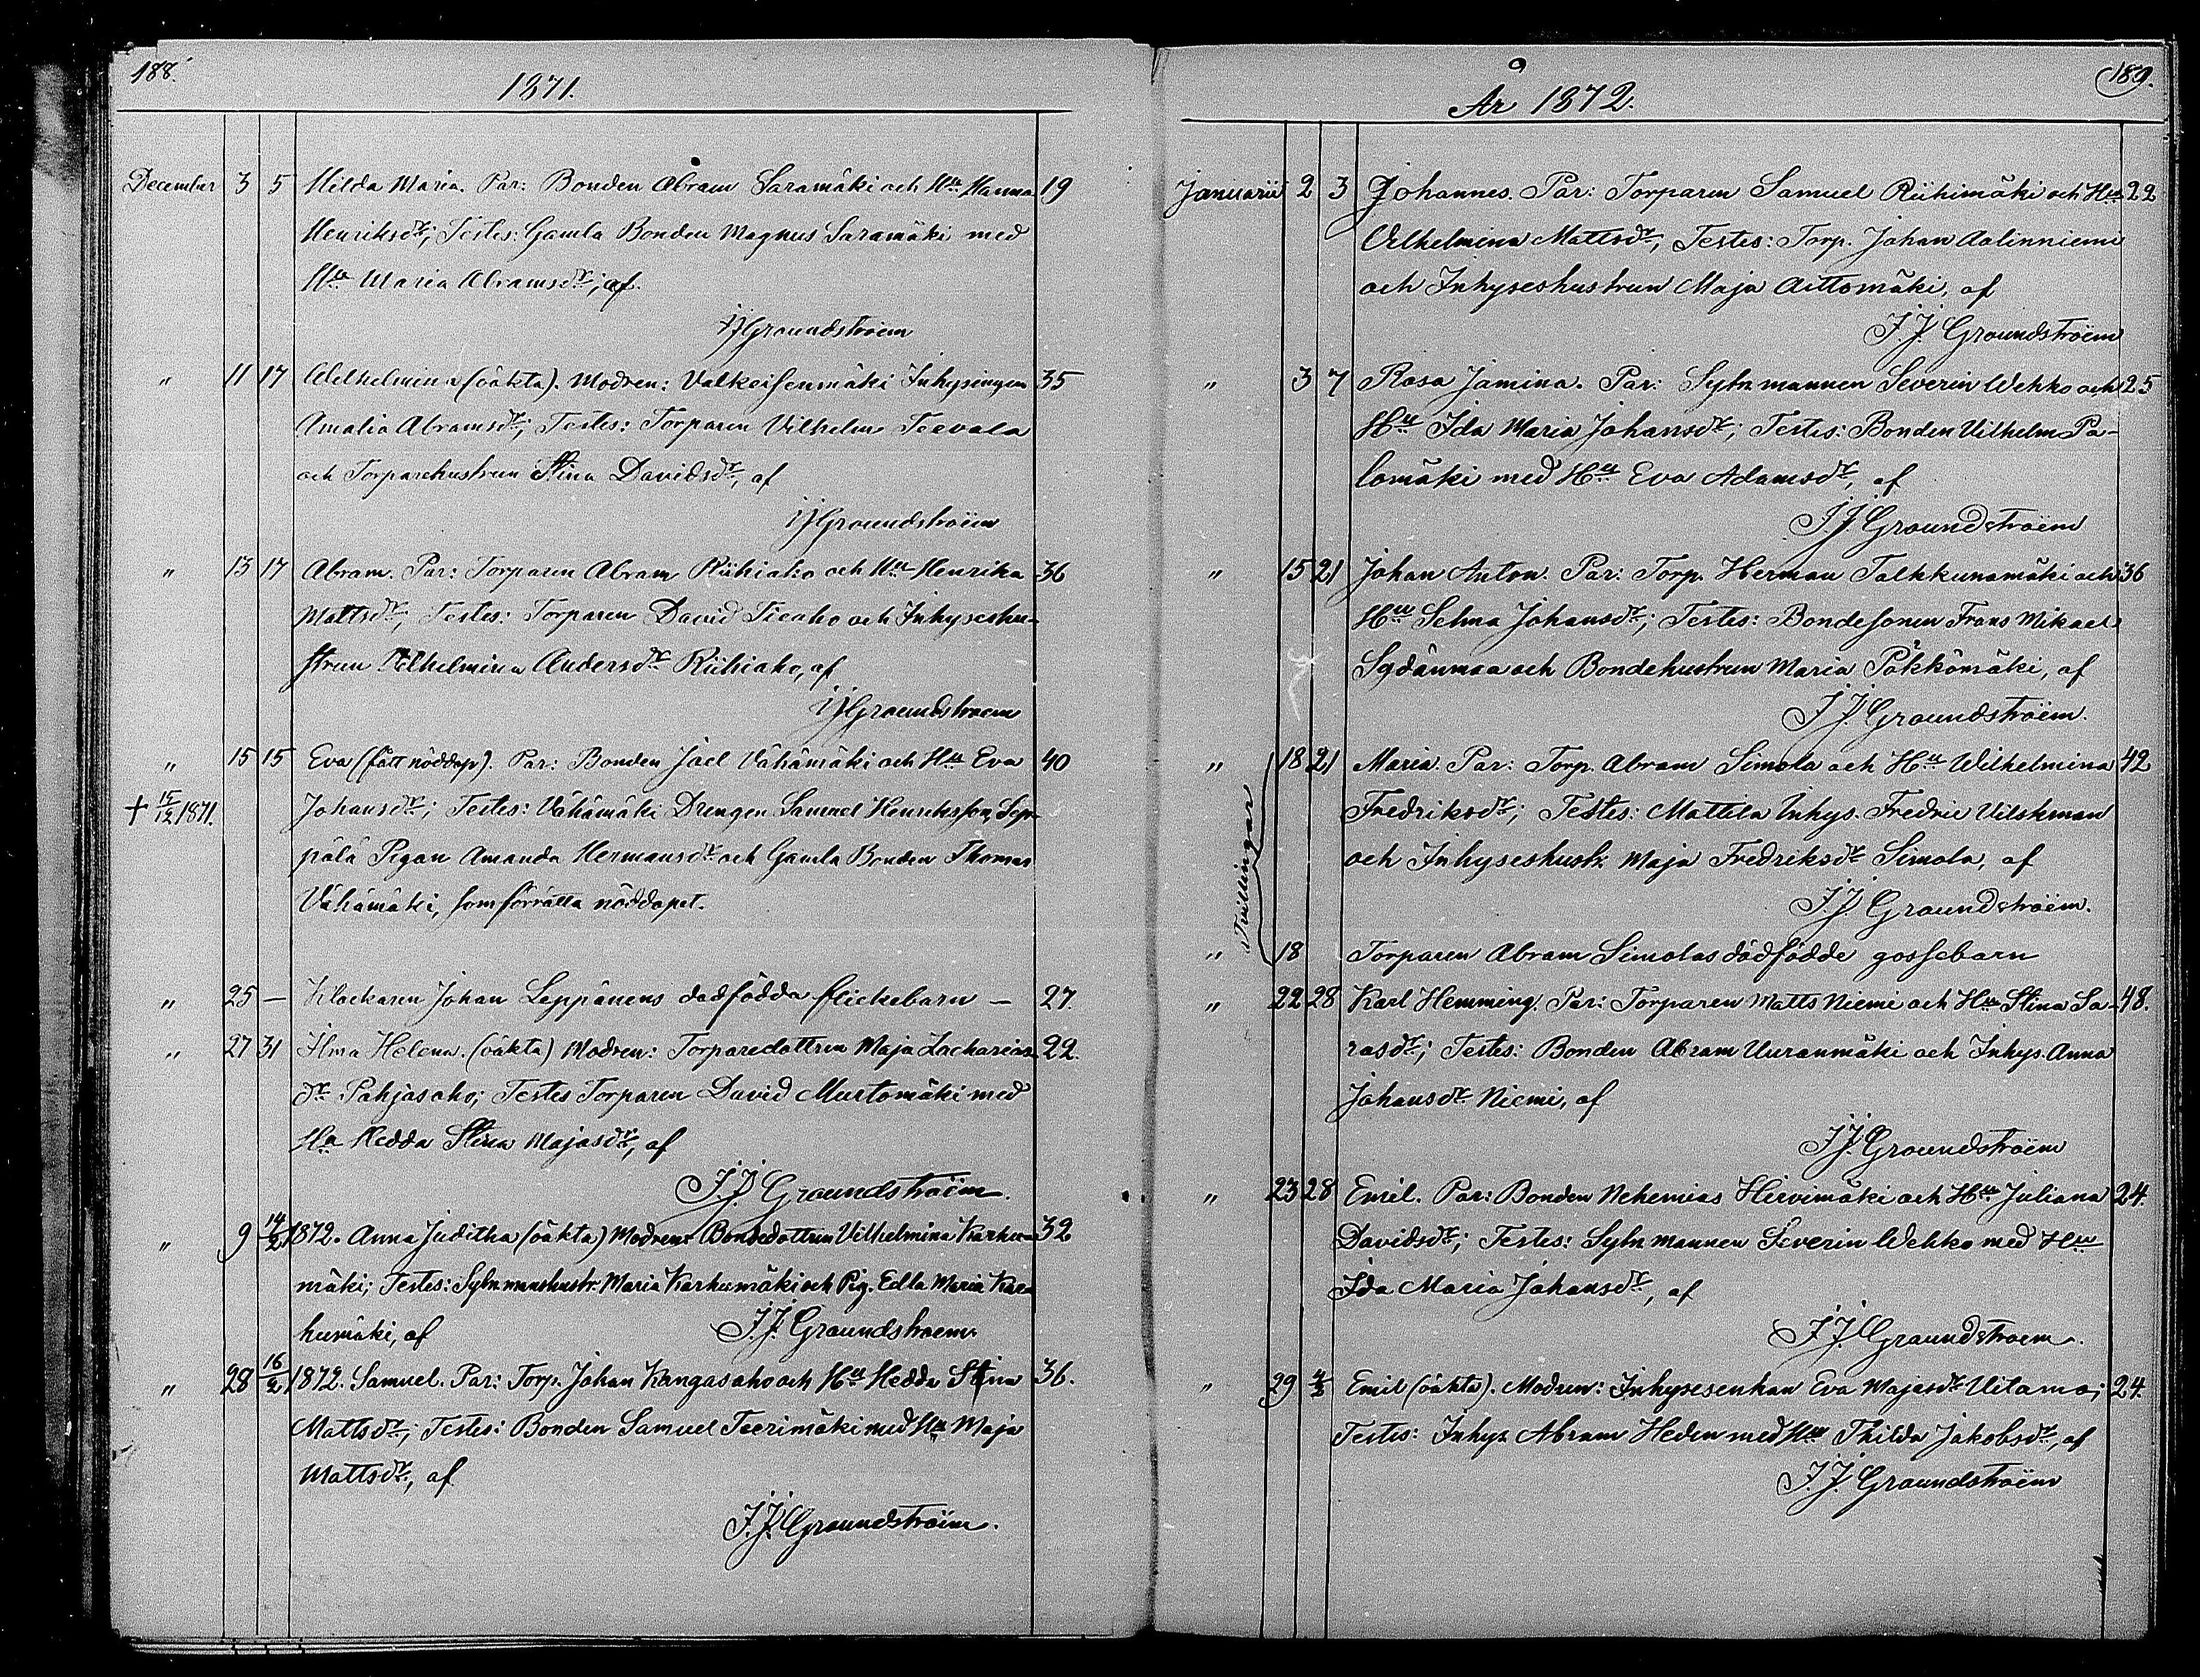 188.
1871.
December 3 5 Hilda Maria. Par: Bonden Abram Saramäki och Hu Hanna 19
Henriksdr; Testes: Gamla Bonden Magnus Saramäki med
Hu Maria Abramsdr, af
JJGroundstroem
" 11 17 Wilhelmina (oäkta). Modren: Valkeisenmäki Inhysingen 35
Amalia Abramsdr; Testes: Torparen Vilhelm Teevala
och Torparehustrun Stina Davidsdr, af
JJGroundstroëm
" 13 17 Abram. Par: Torparen Abram Riihiaho och Hu Henrika 36
Mattsdr; Testes: Torparen David Tieaho och Inhyseshu-
strun Wilhelmina Andersdr Riihiaho, af
JJGroundstroem
" 15 15 Eva (fått nöddop). Par: Bonden Joel Vähämäki och Hu Eva 40
+ 15/12 1871. Johansdr; Testes: Vähämäki Drengen Samuel Henriksson, Sep-
pälä Pigan Amanda Hermansdr och Gamla Bonden Thomas
Vähämäki, som förrätta nöddopet.
" 25 — Klockaren Johan Leppänens dödfödda flickebarn — 27.
" 27 31 Ilma Helena. (oäkta) Modren: Torparedottren Maja Zacharias- 22.
dr Pahjasaho; Testes Torparen David Murtomäki med
Ha Hedda Stina Majasdr, af
J.J. Groundstroëm.
" 9 14/2 1872. Anna Juditha (oäkta) Modren: Bondedottren Vilhelmina Karhu- 32
mäki; Testes: Sytn.manshustr. Maria Karhumäki och Pig. Edla Maria Kar-
humäki, af J.J. Groundstroem.
" 28 16/2 1872. Samuel. Par: Torp. Johan Kangasaho och Hu Hedda Stina 36.
Mattsdr; Testes: Bonden Samuel Teerimäki med Hu Maja
Mattsdr, af
J.J. Groundstroëm.
189.
År 1872.
Januarii 2 3 Johannes. Par: Torparen Samuel Riihimäki och Hu 22
Vilhelmina Mattsdr; Testes: Torp. Johan Aalinniemi
och Inhyseshustrun Maja Aittomäki, af
J.J. Groundstroëm
" 3 7 Rosa Jamina. Par: Sytn mannen Severin Wehko och 25
Hu Ida Maria Johansdr; Testes: Bonden Vilhelm Pa-
lomäki med Hu Eva Adamsdr, af
J.J. Groundstroëm
" 15 21 Johan Anton. Par: Torp. Herman Talkkunamäki och 36
Hu Selma Johansdr; Testes: Bondesonen Frans Mikael
Sydänmaa och Bondehustrun Maria Pökkömäki, af
J.J. Groundstroëm.
Tvillingar
" 18 21 Maria. Par: Torp. Abram Simola och Hu Wilhelmina 42
Fredriksdr; Testes: Mattila Inhys. Fredric Vilskman
och Inhyseshustr. Maja Fredriksdr Simola, af
J.J. Groundstroëm.
" 18 Torparen Abram Simolas dödfödde gossebarn
" 22 28 Karl Hemming. Par: Torparen Matts Niemi och Hu Stina Sa- 48.
rasdr; Testes: Bonden Abram Uuranmäki och Inhys. Anna
Johansdr Niemi, af
J.J. Groundstroëm
" 23 28 Emil. Par: Bonden Nehemias Hirvimäki och Hu Juliana 24.
Davidsdr; Testes: Sytn mannen Severin Wehko med Hu
Ida Maria Johansdr, af
J.J. Groundstroem.
" 29 4/3 Emil (oäkta). Modren: Inhysesenkan Eva Majasdr Uitamo; 24.
Testes: Inhys Abram Heden med Hu Thilda Jakobsdr, af
J.J. Groundstroëm